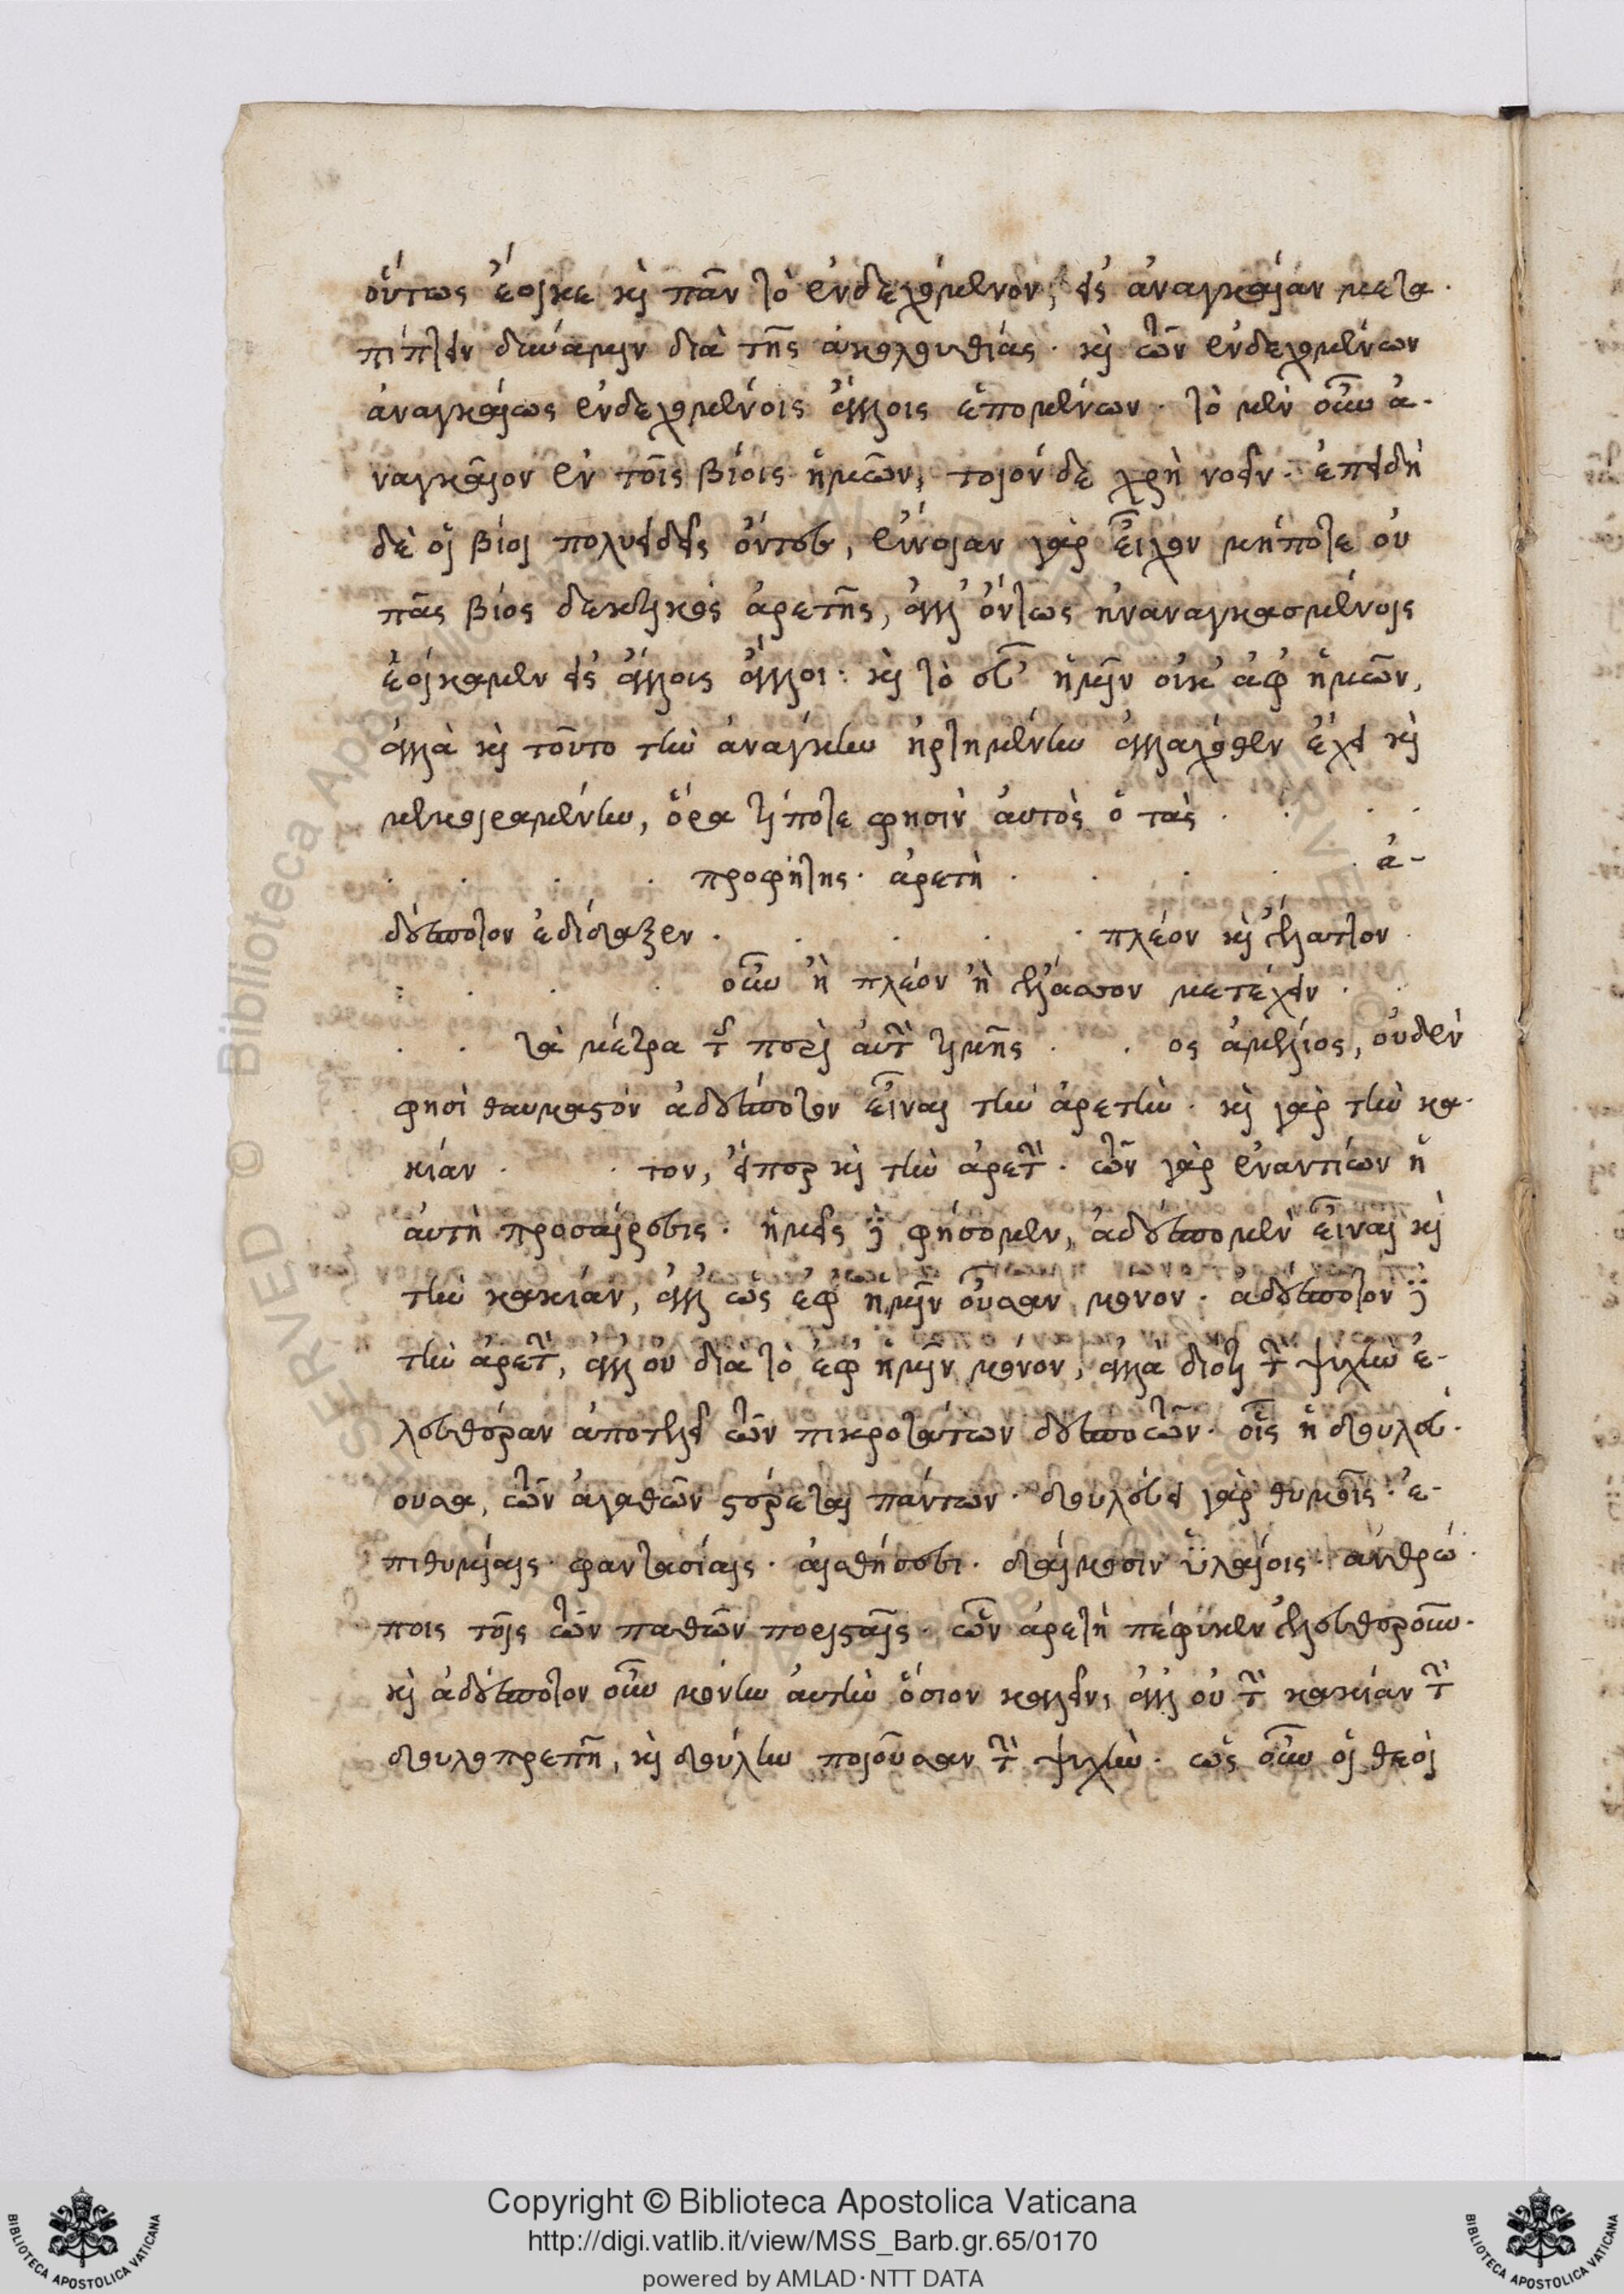 οὕτως ἔοικε καὶ πᾶν τὸ ἐνδεχόμενον, εἰς ἀναγκαίαν μετα-
πίπτειν δύναμιν διὰ τῆς ἀκολουθίας· καὶ τῶν ἐνδεχομένων
ἀναγκαίως ἐνδεχομένοις ἄλλοις ἑπομένων· τὸ μὲν οὖν ἀ-
ναγκαῖον ἐν τοῖς βίοις ἡμῶν, τοιόνδε χρὴ νοεῖν· ἐπειδὴ
δὲ οἱ βίοι πολυειδεῖς ὄντες, ἔννοιαν γὰρ εἶχον μήποτε οὐ
πᾶς βίος δεκτικὸς ἀρετῆς, ἀλλ' ὄντως ἠναναγκασμένοις
ἐοίκαμεν εἰς ἄλλοις ἄλλοι· καὶ τὸ ἡμῖν οὐκ ἀφ' ἡμῶν,
ἀλλὰ καὶ τοῦτο τὴν ἀνάγκην ἠρτημένην ἀλλαχόθεν ἔχει καὶ
μεμοιραμένην, ὅρα τί ποτε φησὶν αὐτὸς ὁ τὰς . . . .
. . . . προφήτης· ἀρετὴ . . . . ἀ-
δέσποτον ἐδίδαξεν . . . . . πλέον καὶ ἔλαττον .
: . . . οὖν ἢ πλέον ἢ ἔλασσον μετέχειν . .
. . τὰ μέτρα τῆς περὶ αὐτὴν τιμῆς . . ος ἀμέλιος, οὐδὲν
φησὶ θαυμαστὸν ἀδέσποτον εἶναι τὴν ἀρετὴν· καὶ γὰρ τὴν κα-
κίαν . . τον, εἴπερ καὶ τὴν ἀρετὴν· τῶν γὰρ ἐναντίων ἡ
αὐτὴ προσαίρεσις· ἡμεῖς δὲ φήσομεν, ἀδέσπομεν εἶναι καὶ
τὴν κακίαν, ἀλλ' ὡς ἐφ' ἡμῖν οὖσαν μόνον· ἀδέσποτον δὲ
τὴν ἀρετὴν, ἀλλ' οὐ διὰ τὸ ἐφ' ἡμῖν μόνον, ἀλλὰ διότι τὴν ψυχὴν ἐ-
λευθέραν ἀποτελεῖ τῶν πικροτάτων δεσποτῶν· οἷς ἡ δουλεύ-
ουσα, τῶν ἀγαθῶν στέρεται πάντων· δουλεύει γὰρ θυμοῖς· ἐ-
πιθυμίαις· φαντασίαις· αἰσθήσεσι· δαίμοσιν ὑλαίοις· ἀνθρώ-
ποις τοῖς τῶν παθῶν πορισταῖς· ὧν ἀρετὴ πέφυκεν ἐλευθεροῦν·
καὶ ἀδέσποτον οὖν μόνην αὐτὴν ὅσιον καλεῖν, ἀλλ' οὐ τὴν κακίαν τὴν
δουλοπρεπῆ, καὶ δούλην ποιοῦσαν τὴν ψυχὴν· ὡς οὖν οἱ θεοὶ
Copyright © Biblioteca Apostolica Vaticana
http://digi.vatlib.it/view/MSS_Barb.gr.65/0170
powered by AMLAD·NTT DATA